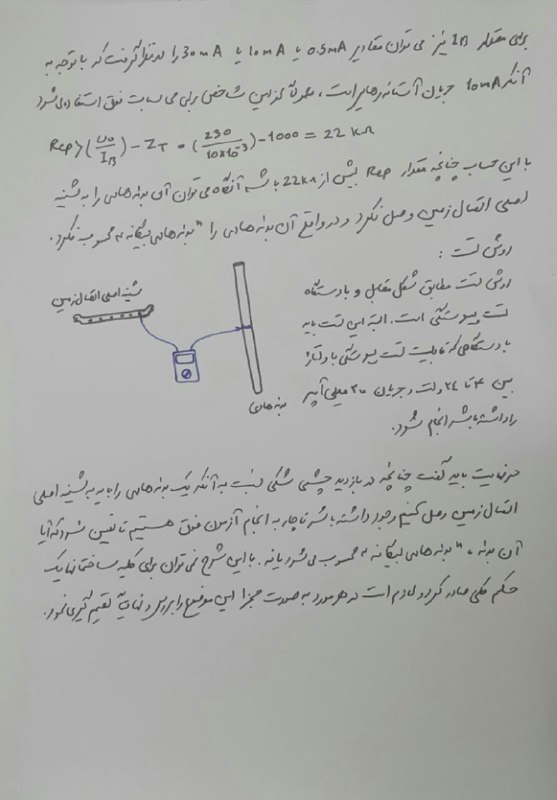 برای مقدار IB نیز می توان مقادیر 0.5mA یا 10mA یا 30mA را در نظر گرفت که با توجه به
آنکه 10mA جریان آستانه رهایی است، معمولاً از این شاخص برای محاسبات فوق استفاده می شود
Rcp > (U0/IB) - ZT = (230/10×10⁻³) - 1000 = 22 kΩ
با این حساب چنانچه مقدار Rcp بیش از 22kΩ باشد آنگاه می توان آن بدنه هادی را به شینه
اصلی اتصال زمین وصل نکرد و در واقع آن بدنه هادی را "بدنه هادی بیگانه" محسوب نکرد.
روش تست :
روش تست مطابق شکل مقابل و با دستگاه
تست پیوستگی است. البته این تست باید
با دستگاهی که قابلیت تست پیوستگی با ولتاژ
بین ۴ تا ۲۴ ولت و جریان ۲۰۰ میلی آمپر
را داشته باشد انجام شود.
شینه اصلی اتصال زمین
بدنه هادی
در نهایت باید گفت چنانچه در بازدید چشمی شکی نسبت به آنکه یک بدنه هادی را باید به شینه اصلی
اتصال زمین وصل کنیم وجود داشته باشد ناچار به انجام آزمون فوق هستیم تا تعیین شود که آیا
آن بدنه، "بدنه هادی بیگانه" محسوب می شود یا نه. با این شرح نمی توان برای کلیه ساختمانها یک
حکم کلی صادر کرد و لازم است در هر مورد به صورت مجزا این موضوع را بررسی و نهایتاً تصمیم گیری نمود.